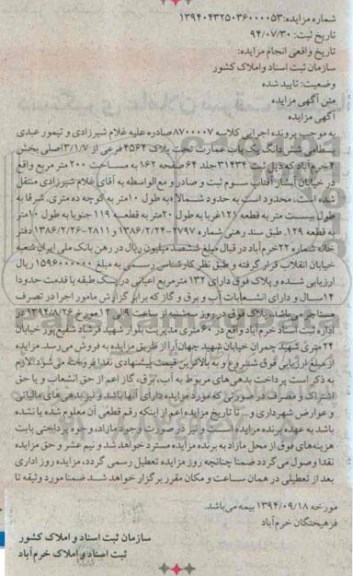 شماره مزایده: ۱۳۹۴۰۴۳۲۵۰۳۶۰۰۰۰۵۳
تاریخ ثبت: ۹۴/۰۷/۳۰
تاریخ واقعی انجام مزایده:
سازمان ثبت اسناد و املاک کشور
وضعیت: تایید شده
متن آگهی مزایده
آگهی مزایده
به موجب پرونده اجرایی کلاسه ۸۷۰۰۰۰۷ صادره علیه غلام شیرزادی و تیمور عبدی
ششدانگ یک باب عمارت تحت پلاک ۴۵۶۴ فرعی از ۳/۱/۷ اصلی بخش
۴ خرم آباد که ذیل ثبت ۳۱۴۳۴ جلد ۶۴ صفحه ۱۶۲ به مساحت ۲۰۰ متر مربع واقع
در خیابان آبشار آفتاب سوم ثبت و صادر و مع الواسطه به آقای غلام شیرزادی منتقل
شده است، محدود است به حدود شمالا به طول ۱۰ متر به کوچه ده متری، شرقا به
طول بیست متر به قطعه ۱۲۱ غربا به طول ۲۰ متر به قطعه ۱۱۹ جنوبا به طول ۱۰ متر
به قطعه ۱۲۹. طبق سند رهنی شماره ۲۷۹۷-۱۳۸۶/۲/۲۴ و ۲۸۱۱-۱۳۸۶/۲/۲۶ دفتر
خانه شماره ۲۲ خرم آباد در قبال مبلغ ششصد میلیون ریال در رهن بانک ملی ایران شعبه
خیابان انقلاب قرار گرفته و طبق نظر کارشناس رسمی به مبلغ ۱۵۹۶۰۰۰۰۰۰ ریال
ارزیابی شده و پلاک فوق دارای ۱۳۲ مترمربع اعیانی در یک طبقه با قدمت حدودا
۱۴ سال و دارای انشعابات آب و برق و گاز که برابر گزارش مامور اجرا در تصرف
مستاجر می باشد. پلاک فوق در روز سه شنبه از ساعت ۹ الی ۱۲ مورخ ۱۳۹۴/۸/۲۶ در
اداره ثبت اسناد خرم آباد واقع در ۶۰ متری مدیریت بلوار شهید فرشاد شفیع پور خیابان
۲۴ متری شهید چمران خیابان شهید جهان آرا از طریق مزایده به فروش می رسد. مزایده
از مبلغ ارزیابی فوق شروع و به بالاترین قیمت پیشنهادی نقدا فروخته می شود. لازم
به ذکر است پرداخت بدهی های مربوط به آب، برق، گاز اعم از حق انشعاب و یا حق
اشتراک و مصرف در صورتی که مورد مزایده دارای آنها باشد و نیز بدهی های مالیاتی
و عوارض شهرداری و ... تا تاریخ مزایده اعم از اینکه رقم قطعی آن معلوم شده یا نشده
باشد به عهده برنده مزایده است و نیز در صورت وجود مازاد، وجوه پرداختی بابت
هزینه های فوق از محل مازاد به برنده مزایده مسترد خواهد شد و نیم عشر و حق مزایده
نقدا وصول می گردد ضمنا چنانچه روز مزایده تعطیل رسمی گردد، مزایده روز اداری
بعد از تعطیلی در همان ساعت و مکان مقرر برگزار خواهد شد ضمنا مورد وثیقه تا
مورخه ۱۳۹۴/۰۹/۱۸ بیمه می باشد.
فرهیختگان خرم آباد
سازمان ثبت اسناد و املاک کشور
ثبت اسناد و املاک خرم آباد